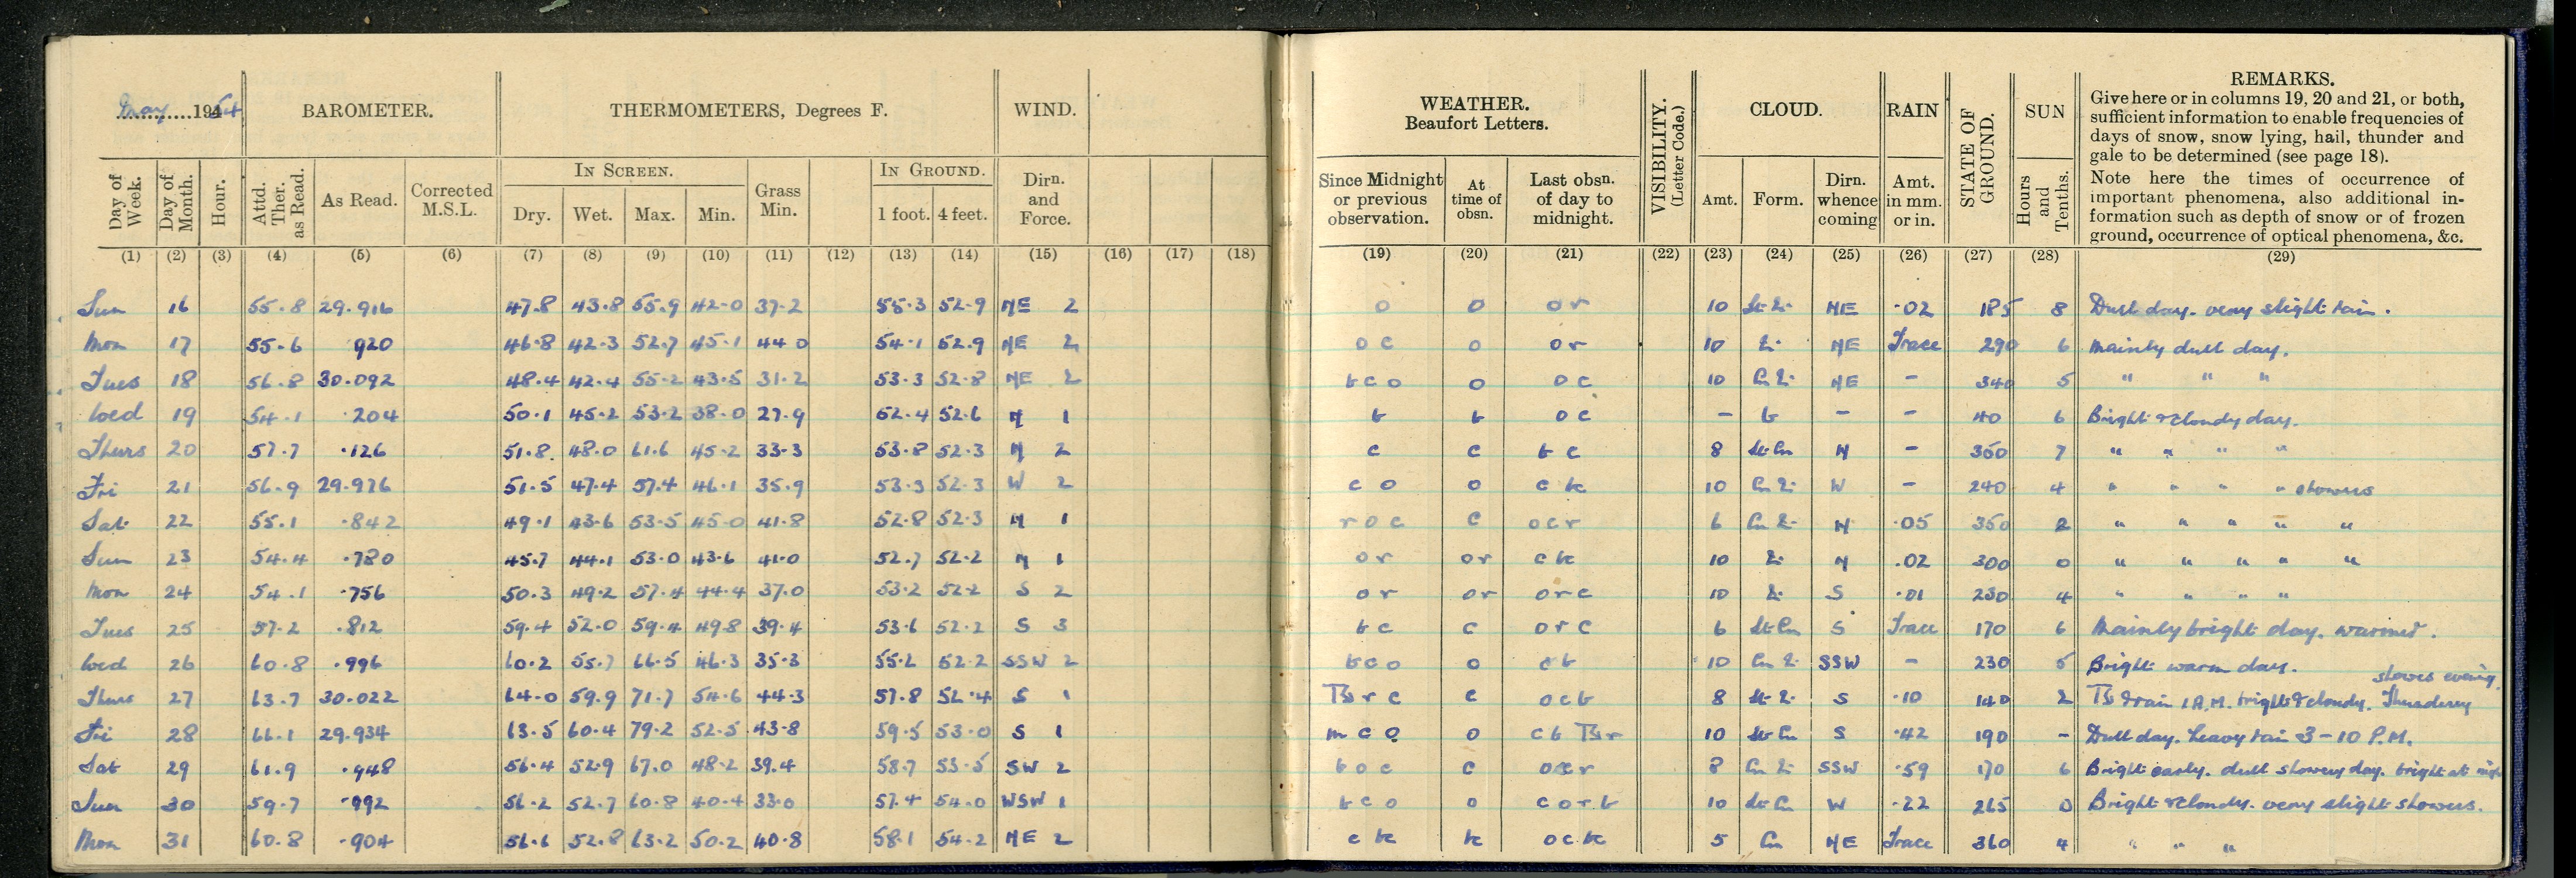 May 1954
BAROMETER.
THERMOMETERS, Degrees F.
WIND.
Day of Week.
Day of Month.
Hour.
Attd. Ther. as Read.
As Read.
Corrected M.S.L.
IN SCREEN.
Dry. Wet. Max. Min.
Grass Min.
IN GROUND.
1 foot. 4 feet.
Dirn. and Force.
(1) (2) (3) (4) (5) (6) (7) (8) (9) (10) (11) (12) (13) (14) (15) (16) (17) (18)
WEATHER.
Beaufort Letters.
Since Midnight or previous observation.
At time of obsn.
Last obsn. of day to midnight.
VISIBILITY. (Letter Code.)
CLOUD.
Amt. Form. Dirn. whence coming
RAIN
Amt. in mm. or in.
STATE OF GROUND.
SUN
Hours and Tenths.
REMARKS.
Give here or in columns 19, 20 and 21, or both,
sufficient information to enable frequencies of
days of snow, snow lying, hail, thunder and
gale to be determined (see page 18).
Note here the times of occurrence of
important phenomena, also additional in-
formation such as depth of snow or of frozen
ground, occurrence of optical phenomena, &c.
(19) (20) (21) (22) (23) (24) (25) (26) (27) (28) (29)
Sun 16 55.8 29.916 47.8 43.8 55.9 42.0 37.2 55.3 52.9 NE 2 o o or 10 NE .02 185 8 Dull day. very slight rain.
Mon 17 55.6 920 46.8 42.3 52.7 45.1 44.0 54.1 52.9 NE 2 oc o or 10 NE Trace 290 6 Mainly dull day.
Tues 18 56.8 30.092 48.4 42.4 55.2 43.5 31.2 53.3 52.8 NE 2 bco o oc 10 NE - 340 5 " " "
Wed 19 54.1 .204 50.1 45.2 53.2 38.0 27.9 52.4 52.6 N 1 b b oc - b - - 40 6 Bright & cloudy day.
Thurs 20 57.7 .126 51.8 48.0 61.6 45.2 33.3 53.8 52.3 N 2 c c bc 8 St Cu N - 350 7 " " " "
Fri 21 56.9 29.926 51.5 47.4 57.4 46.1 35.9 53.3 52.3 W 2 co o c bc 10 W - 240 4 " " " " showers
Sat 22 55.1 .842 49.1 43.6 53.5 45.0 41.8 52.8 52.3 N 1 roc c ocr 6 N .05 350 2 " " " " "
Sun 23 54.4 .780 45.7 44.1 53.0 43.6 41.0 52.7 52.2 N 1 or or c bc 10 N .02 300 0 " " " " "
Mon 24 54.1 .756 50.3 49.2 57.4 44.4 37.0 53.2 52.2 S 2 or or orc 10 S .01 230 4 " " " "
Tues 25 57.2 .812 59.4 52.0 59.4 49.8 39.4 53.6 52.2 S 3 bc c orc 6 St Cu S Trace 170 6 Mainly bright day. warmer.
Wed 26 60.8 .996 60.2 55.7 66.5 46.3 35.3 55.2 52.2 SSW 2 bco o cb 10 SSW - 230 5 Bright warm day.
Thurs 27 63.7 30.022 64.0 59.9 71.7 54.6 44.3 57.8 52.4 S 1 c ocb 8 S .10 140 2 & rain 1 A.M. bright & cloudy. Thundery showers evening.
Fri 28 66.1 29.934 63.5 60.4 79.2 52.5 43.8 59.5 53.0 S 1 mco o 10 St Cu S .42 190 - Dull day. heavy rain 3-10 P.M.
Sat 29 61.9 .948 56.4 52.9 67.0 48.2 39.4 58.7 53.5 SW 2 boc c ocr 8 SSW .59 170 6 Bright early. dull showery day. bright at night
Sun 30 59.7 .992 56.2 52.7 60.8 40.4 33.0 57.4 54.0 WSW 1 bco o corb 10 St Cu W .22 265 0 Bright & cloudy. very slight showers.
Mon 31 60.8 .904 56.6 52.8 63.2 50.2 40.8 58.1 54.2 NE 2 c bc bc oc bc 5 Cu NE Trace 360 4 " " "